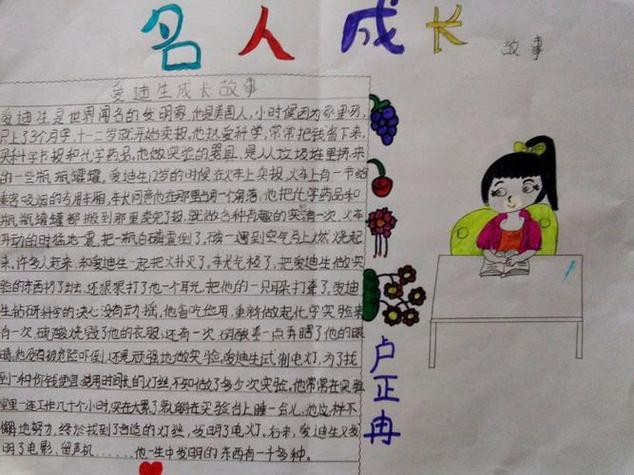 名人成长
故事
爱迪生成长故事
爱迪生是世界闻名的发明家,他是美国人,小时候因为家里穷,
只上了3个月学,十二岁就开始卖报,他热爱科学,常常把钱省下来,
买科学书报和化学药品。他做实验的器具,是从垃圾堆里捡来
的一些瓶瓶罐罐。爱迪生12岁的时候在火车上卖报,火车上有一节给
乘客吸烟的专用车厢,车长同意他在那里占用一个角落,他把化学药品和
瓶瓶罐罐都搬到那里卖完了报,就做各种有趣的实一次,火车
开动的时猛地一震,把一瓶白磷震倒了,磷一遇到空气马上燃烧起
来,许多人赶来,和爱迪生一起把火扑灭了,车长气极了,把爱迪生做实
验的东西扔了出去,还狠狠打了他一个耳光,把他的一只耳朵打聋了,爱迪
生钻研科学的决心没有动摇,他省吃俭用,重新做起化学实验来
有一次硫酸烧毁了他的衣服;还有一次,硝酸差一点弄瞎了他的眼
睛,他没有被危险吓倒,还是顽强地做实验,爱迪生试制电灯,为了找
到一种价钱便宜,使用时间长的灯丝,不知做了多少次实验,他常常在实验
室里一连工作几十个小时,实在太累了就躺在实验台上睡一会儿,他这样不
懈地努力,终於找到了合适的灯丝,发明了电灯。后来,爱迪生又发
明了电影、留声机......,他一生中发明的东西有一千多种。
卢正冉